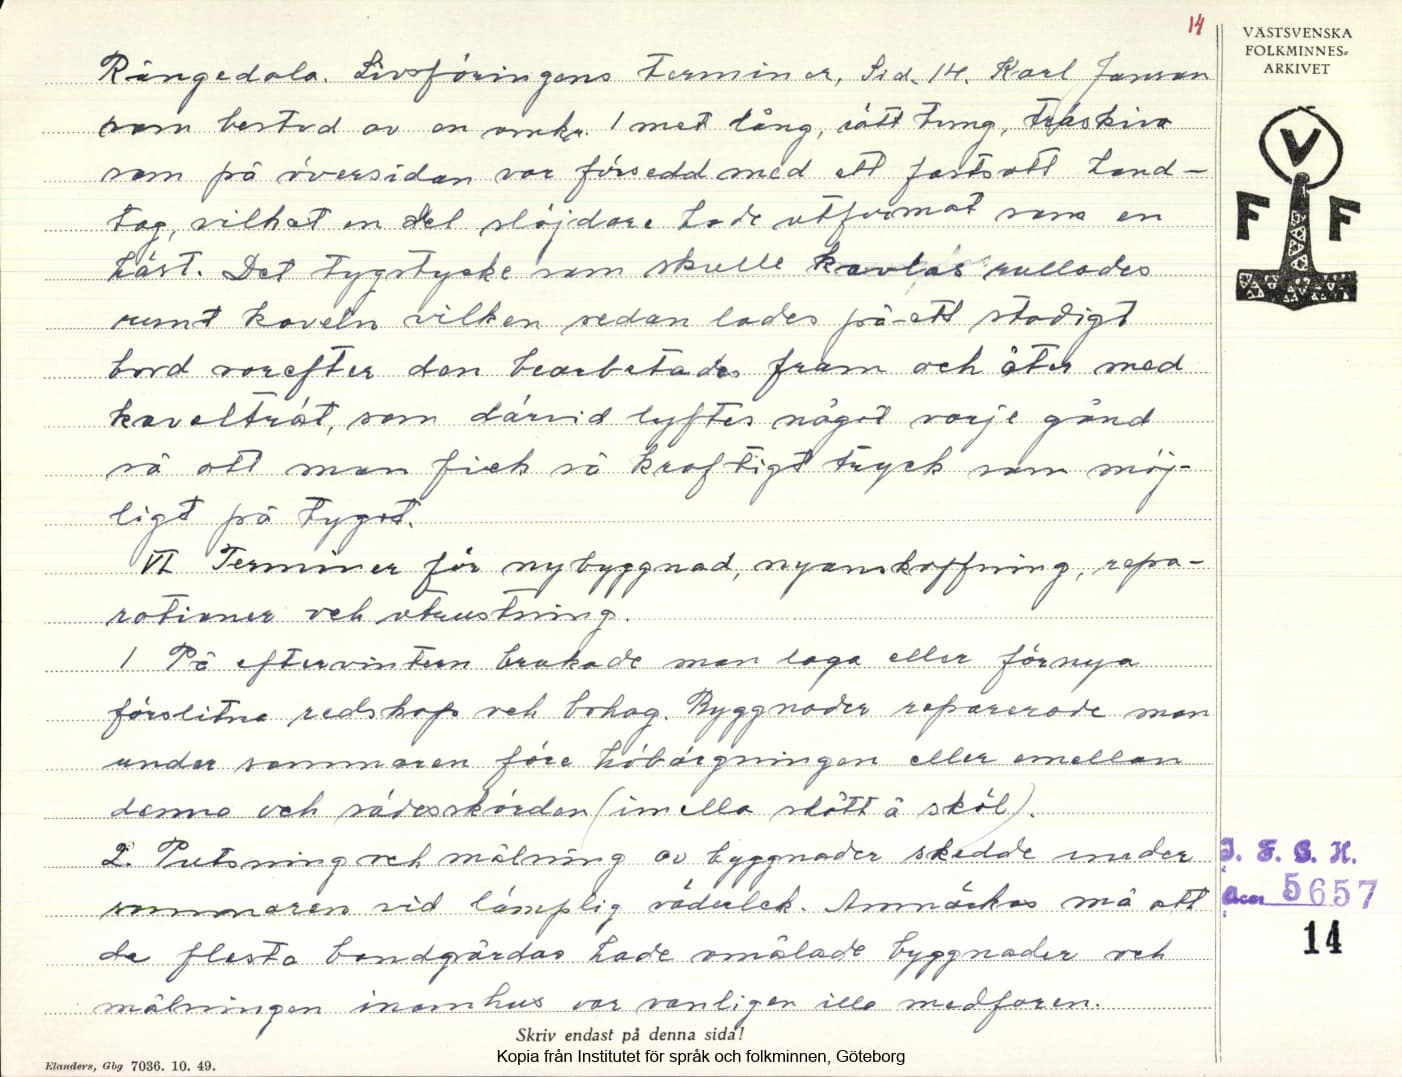 14
VÄSTSVENSKA
FOLKMINNES-
ARKIVET
V
F F
Rångedala. Livsföringens Terminer, Sid. 14. Karl Janson
som bestod av en omkr. 1 met lång, rätt tung, träskiva
som på översidan var försedd med ett fastsatt hand-
tag, vilket en del slöjdare hade utformat som en
häst. Det tygstycke som skulle kavlas rullades
runt kaveln vilken sedan lades på ett stadigt
bord varefter den bearbetades fram och åter med
kavelträt, som därvid lyftes något varje gånd
så att man fick så kraftigt tryck som möj-
ligt på tyget.
VI Terminer för nybyggnad, nyanskaffning, repa-
rationer och utrustning.
1 På eftervintern brukade man laga eller förnya
förslitna redskap och bohag. Byggnader reparerade man
under sommaren före höbärgningen eller emellan
denna och sädesskörden (imella slått å sköl).
2. Putsning och målning av byggnader skedde under
sommaren vid lämplig väderlek. Anmärkas må att
de flesta bondgårdar hade omålade byggnader och
målningen inomhus var vanligen illa medfaren.
I. F. G. H.
Acc. 5657
14
Skriv endast på denna sida!
Kopia från Institutet för språk och folkminnen, Göteborg
Elanders, Gbg 7036. 10. 49.